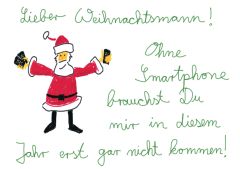 Lieber Weihnachtsmann!
Ohne
Smartphone
brauchst Du
mir in diesem
Jahr erst gar nicht kommen!